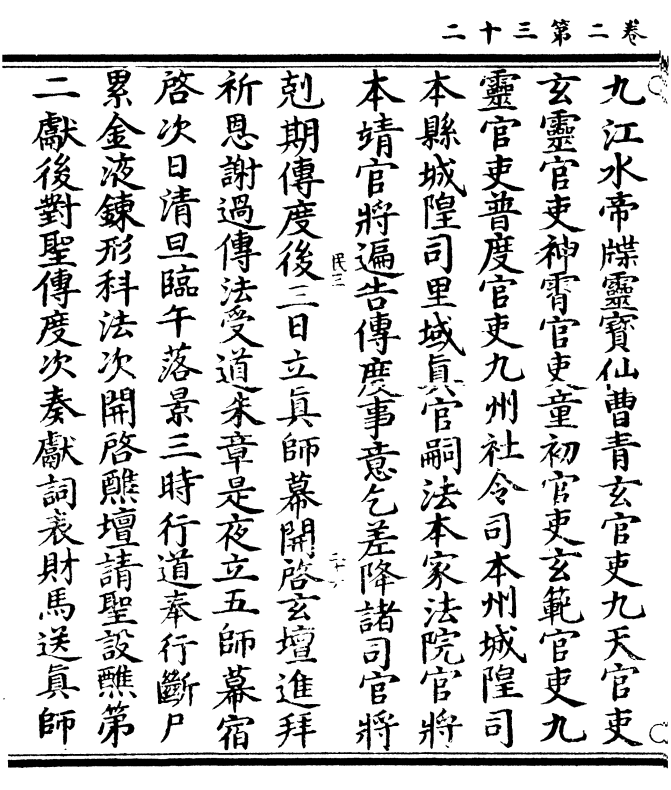 卷二第三十二
九江水帝牒靈寶仙曹青玄官吏九天官吏
玄靈官吏神霄官吏童初官吏玄範官吏九
靈官吏普度官吏九州社令司本州城隍司
本縣城隍司里域眞官嗣法本家法院官將
本靖官將遍告傳度事意乞差降諸司官將
民三
二十六
剋期傳度後三日立眞師幕開啓玄壇進拜
祈恩謝過傳法受道朱章是夜立五師幕宿
啓次日清旦臨午落景三時行道奉行斷尸
累金液鍊形科法次開啓醮壇請聖設醮第
二獻後對聖傳度次奏獻詞表財馬送眞師